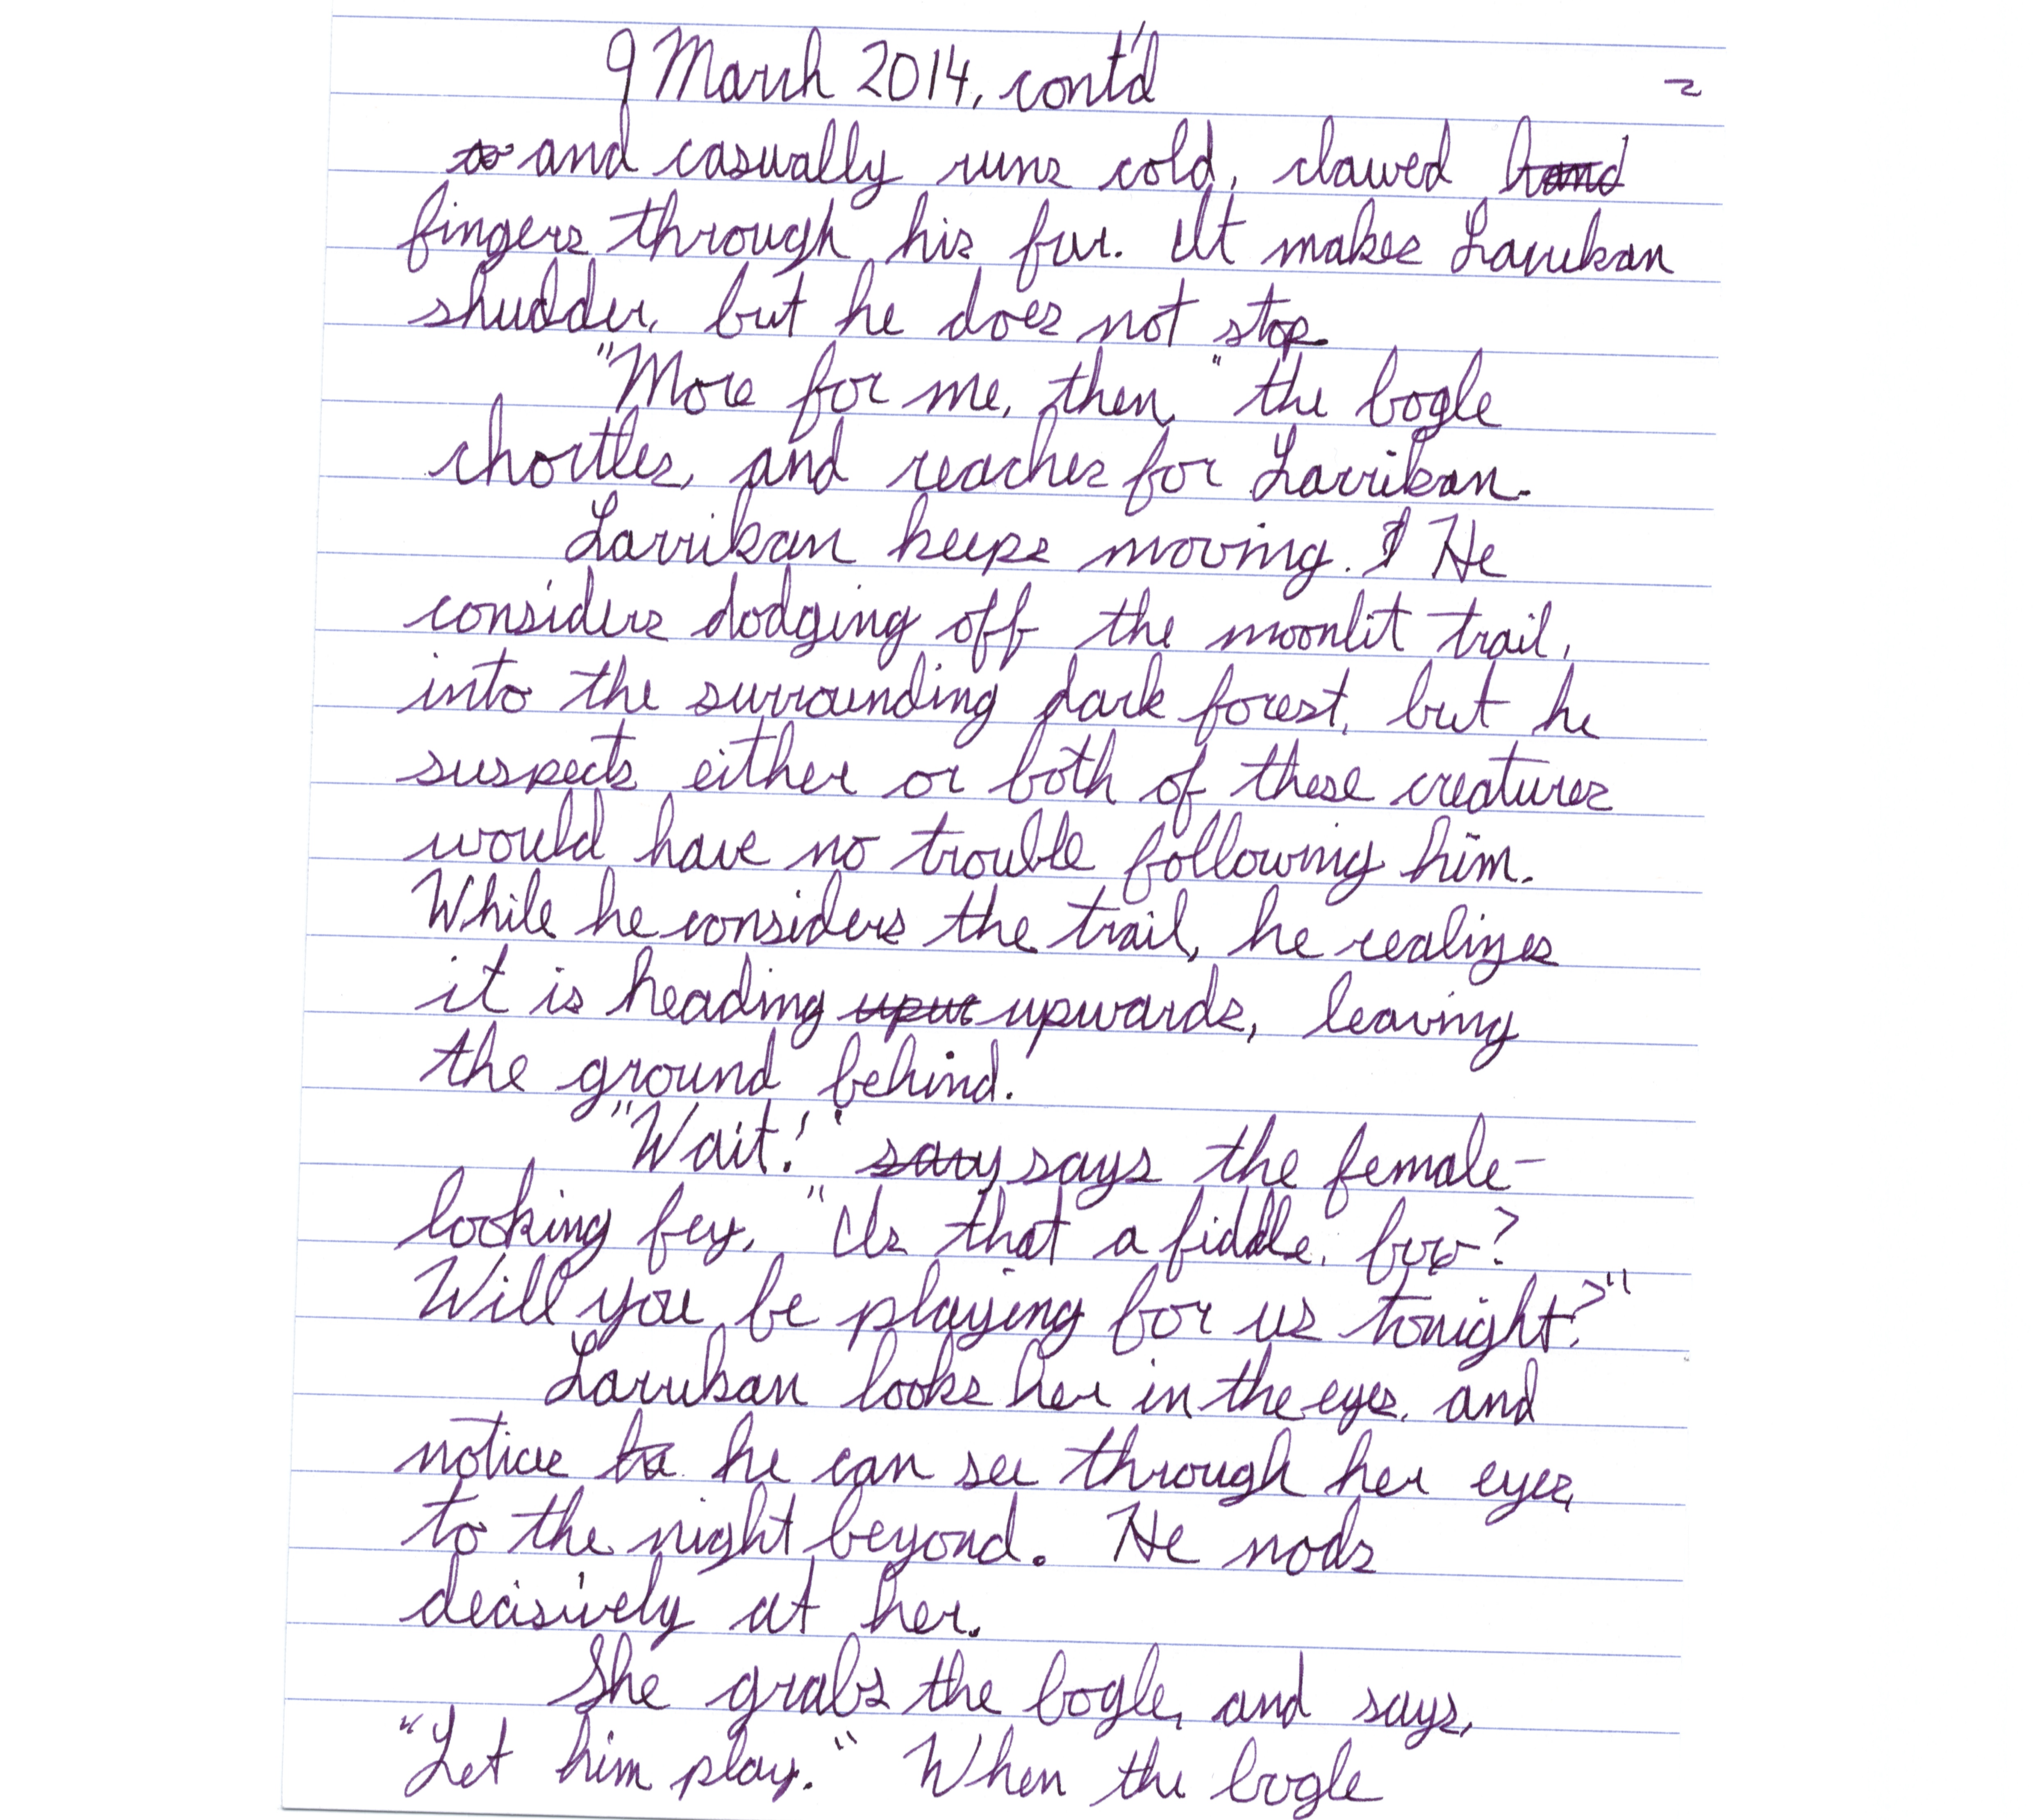 9 March 2014, cont'd
2
and casually runs cold, clawed hand
fingers through his fur. It makes Larrikan
shudder, but he does not stop.
"More for me, then," the bogle
chortles, and reaches for Larrikan.
Larrikan keeps moving. I He
considers dodging off the moonlit trail,
into the surrounding dark forest, but he
suspects either or both of these creatures
would have no trouble following him.
While he considers the trail, he realizes
it is heading upwards, leaving
the ground behind.
"Wait!" say says the female-
looking fey, "Is that a fiddle, boy?
Will you be playing for us tonight?"
Larrikan looks her in the eyes, and
notices he can see through her eyes,
to the night beyond. He nods
decisively at her.
She grabs the bogle, and says,
"Let him play." When the bogle